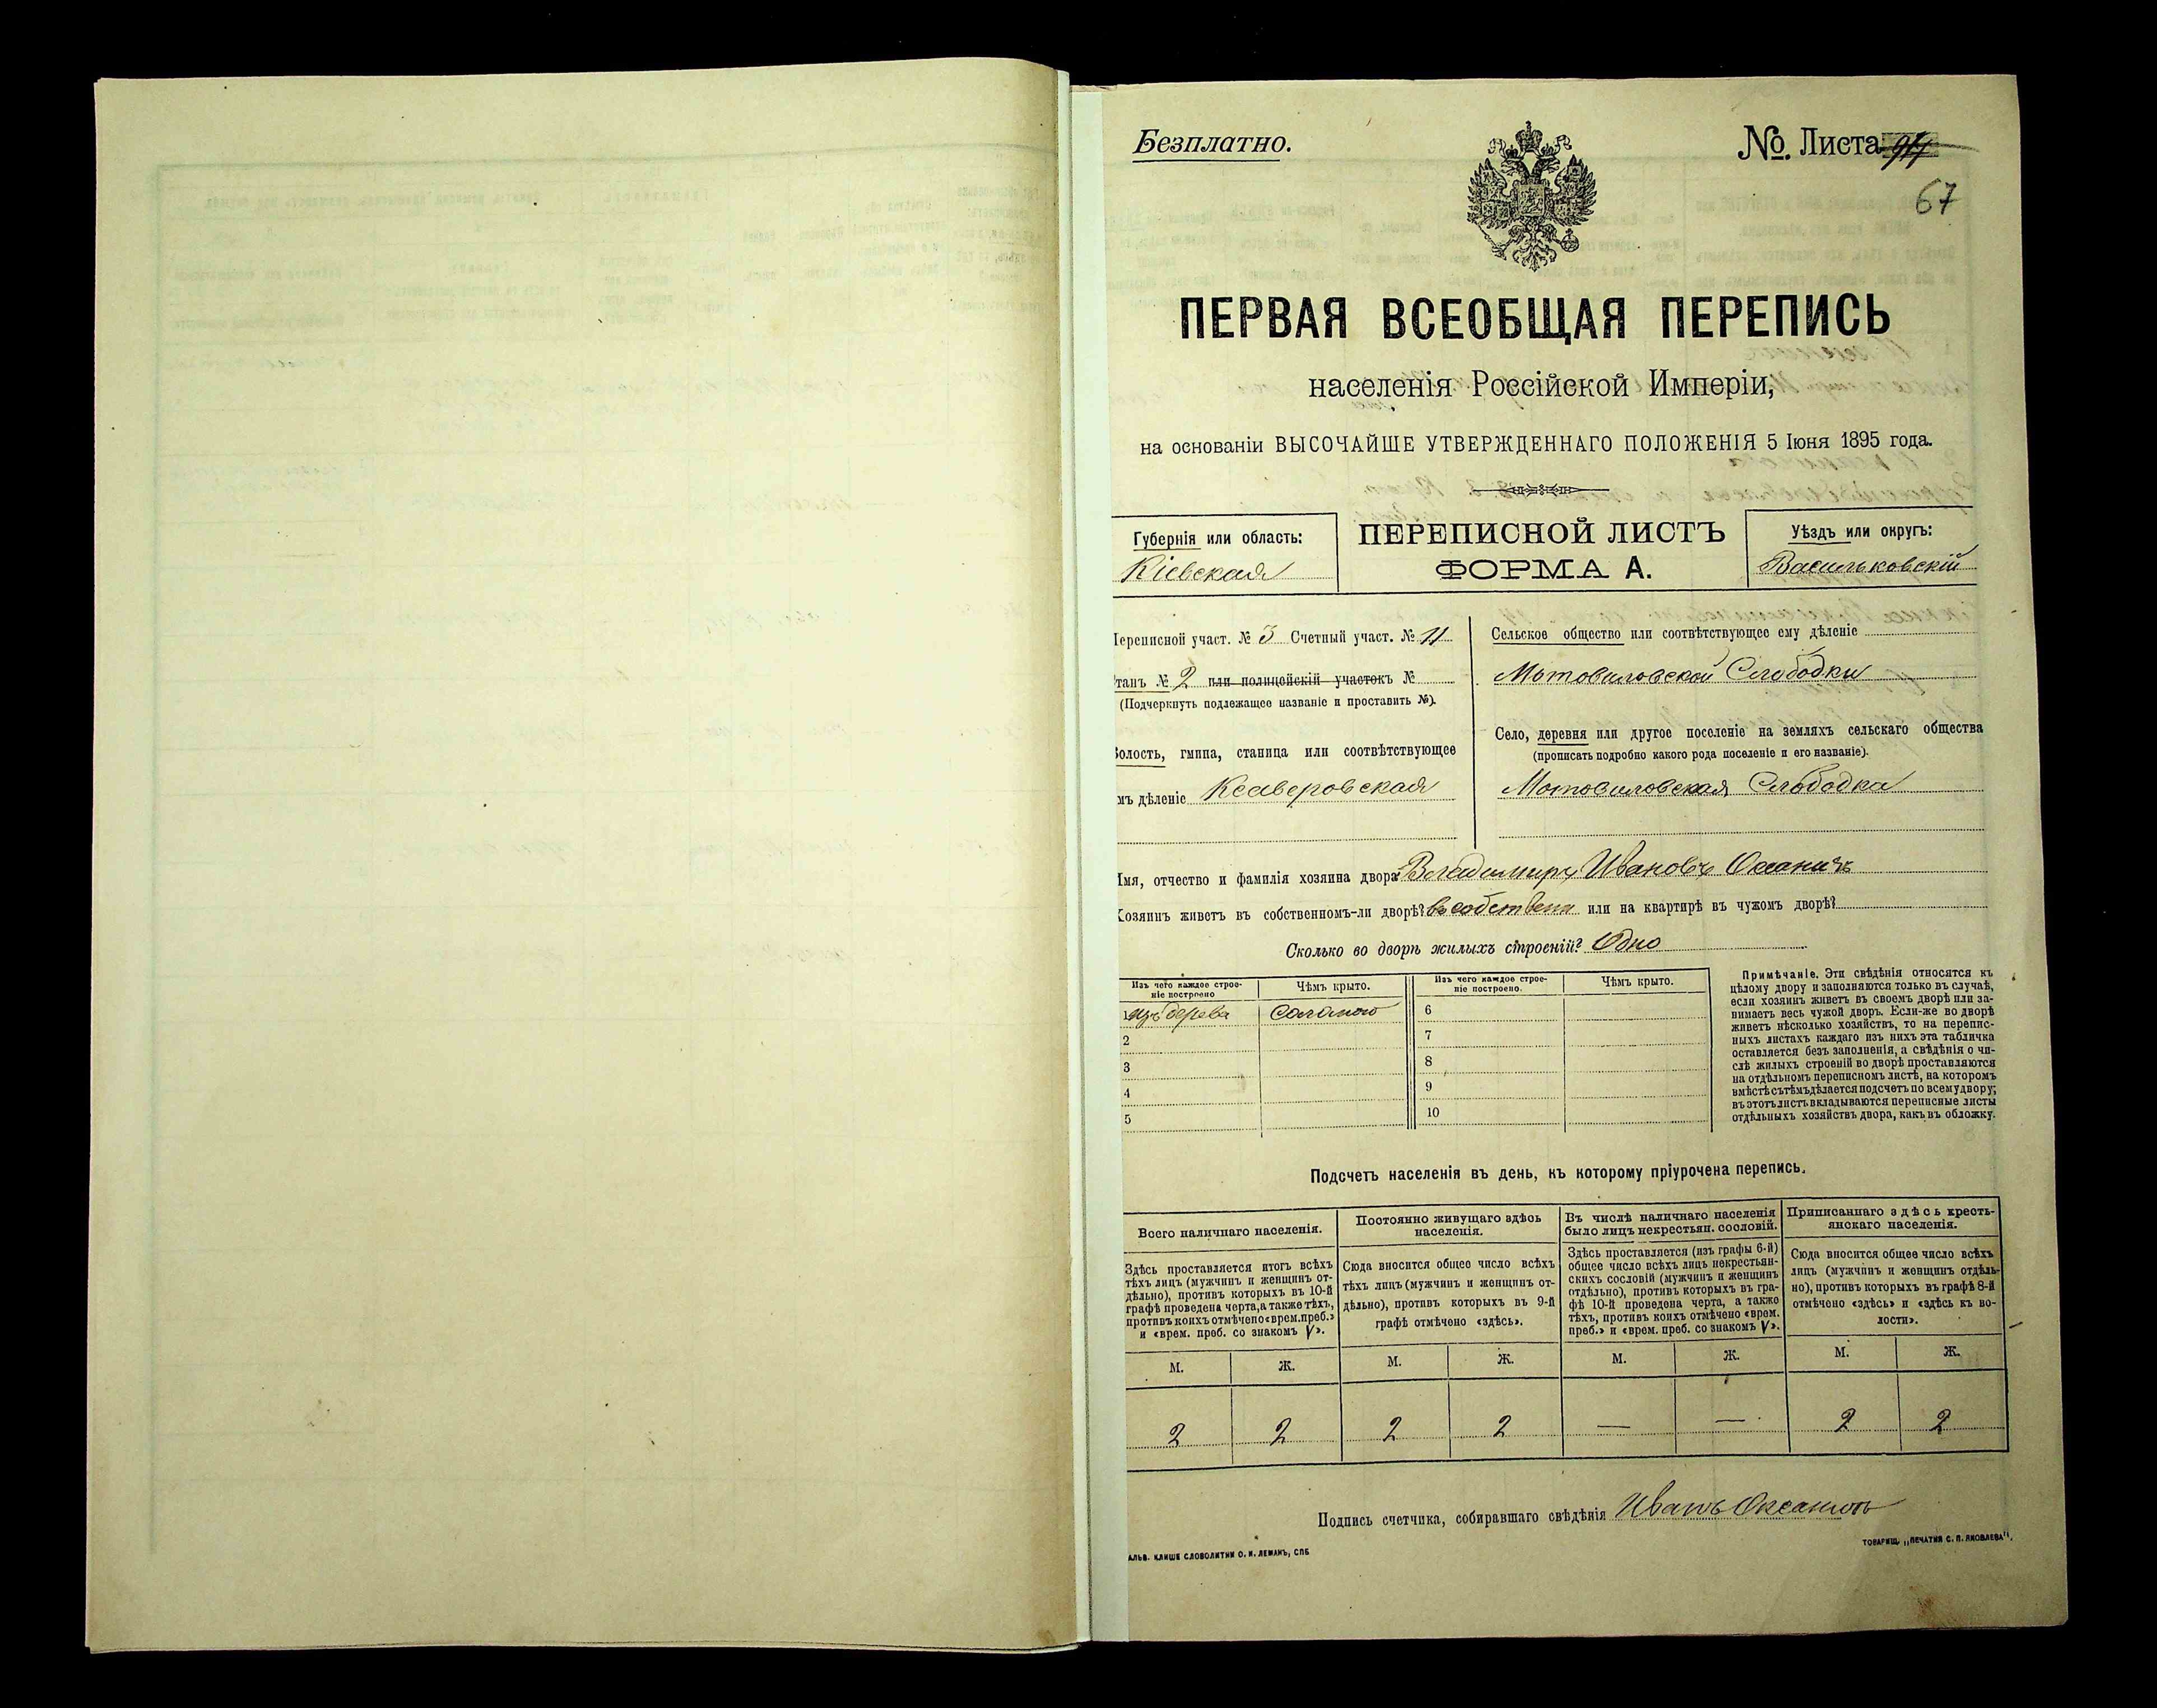 Безплатно.
№. Листа
67
ПЕРВАЯ ВСЕОБЩАЯ ПЕРЕПИСЬ
населенія Россійской Имперіи,
на основаніи ВЫСОЧАЙШЕ УТВЕРЖДЕННАГО ПОЛОЖЕНІЯ 5 Іюня 1895 года.
Губернія или область:
Кіевская
ПЕРЕПИСНОЙ ЛИСТЪ
ФОРМА А.
Уѣздъ или округъ:
Васильковскій
Переписной участ. № 3 Счетный участ. № 11
Станъ № 2 или полицейскій участокъ №
(Подчеркнуть подлежащее названіе и проставить №).
Волость, гмина, станица или соотвѣтствующее
имъ дѣленіе Ксаверовская
Сельское общество или соотвѣтствующее ему дѣленіе
Мотовиловской Слободки
Село, деревня или другое поселеніе на земляхъ сельскаго общества
(прописать подробно какого рода поселеніе и его названіе).
Мотовиловская Слободка
Имя, отчество и фамилія хозяина двора Владимиръ Ивановъ Оксаничъ
Хозяинъ живетъ въ собственномъ-ли дворѣ? въ собствен или на квартирѣ въ чужомъ дворѣ?
Сколько во дворѣ жилыхъ строеній? Одно
Изъ чего каждое строе-
ніе построено
Чѣмъ крыто.
Изъ чего каждое строе-
ніе построено.
Чѣмъ крыто.
1 изъ дерева Соломою 6
2 7
3 8
4 9
5 10
Примѣчаніе. Эти свѣдѣнія относятся къ
цѣлому двору и заполняются только въ случаѣ,
если хозяинъ живетъ въ своемъ дворѣ или за-
нимаетъ весь чужой дворъ. Если-же во дворѣ
живетъ нѣсколько хозяйствъ, то на перепис-
ныхъ листахъ каждаго изъ нихъ эта табличка
оставляется безъ заполненія, а свѣдѣнія о чи-
слѣ жилыхъ строеній во дворѣ проставляются
на отдѣльномъ переписномъ листѣ, на которомъ
вмѣстѣ съ тѣмъ дѣлается подсчетъ по всему двору;
въ этотъ листъ вкладываются переписные листы
отдѣльныхъ хозяйствъ двора, какъ въ обложку.
Подсчетъ населенія въ день, къ которому пріурочена перепись.
Всего наличнаго населенія.
Здѣсь проставляется итогъ всѣхъ
тѣхъ лицъ (мужчинъ и женщинъ от-
дѣльно), противъ которыхъ въ 10-й
графѣ проведена черта, а также тѣхъ,
противъ коихъ отмѣчено «врем. преб.»
и «врем. преб. со знакомъ V».
Постоянно живущаго здѣсь
населенія.
Сюда вносится общее число всѣхъ
тѣхъ лицъ (мужчинъ и женщинъ от-
дѣльно), противъ которыхъ въ 9-й
графѣ отмѣчено «здѣсь».
Въ числѣ наличнаго населенія
было лицъ некрестьян. сословій.
Здѣсь проставляется (изъ графы 6-й)
общее число всѣхъ лицъ некрестьян-
скихъ сословій (мужчинъ и женщинъ
отдѣльно), противъ которыхъ въ гра-
фѣ 10-й проведена черта, а также
тѣхъ, противъ коихъ отмѣчено «врем.
преб.» и «врем. преб. со знакомъ V».
Приписаннаго здѣсь кресть-
янскаго населенія.
Сюда вносится общее число всѣхъ
лицъ (мужчинъ и женщинъ отдѣль-
но), противъ которыхъ въ графѣ 8-й
отмѣчено «здѣсь» и «здѣсь къ во-
лости».
М. Ж. М. Ж. М. Ж. М. Ж.
2 2 2 2 — — 2 2
Подпись счетчика, собиравшаго свѣдѣнія Иванъ Оксанюк
АЛЬВ. КЛИШЕ СЛОВОЛИТНИ О. И. ЛЕМАНЪ, СПБ
ТОВАРИЩ. „ПЕЧАТНЯ С. П. ЯКОВЛЕВА".